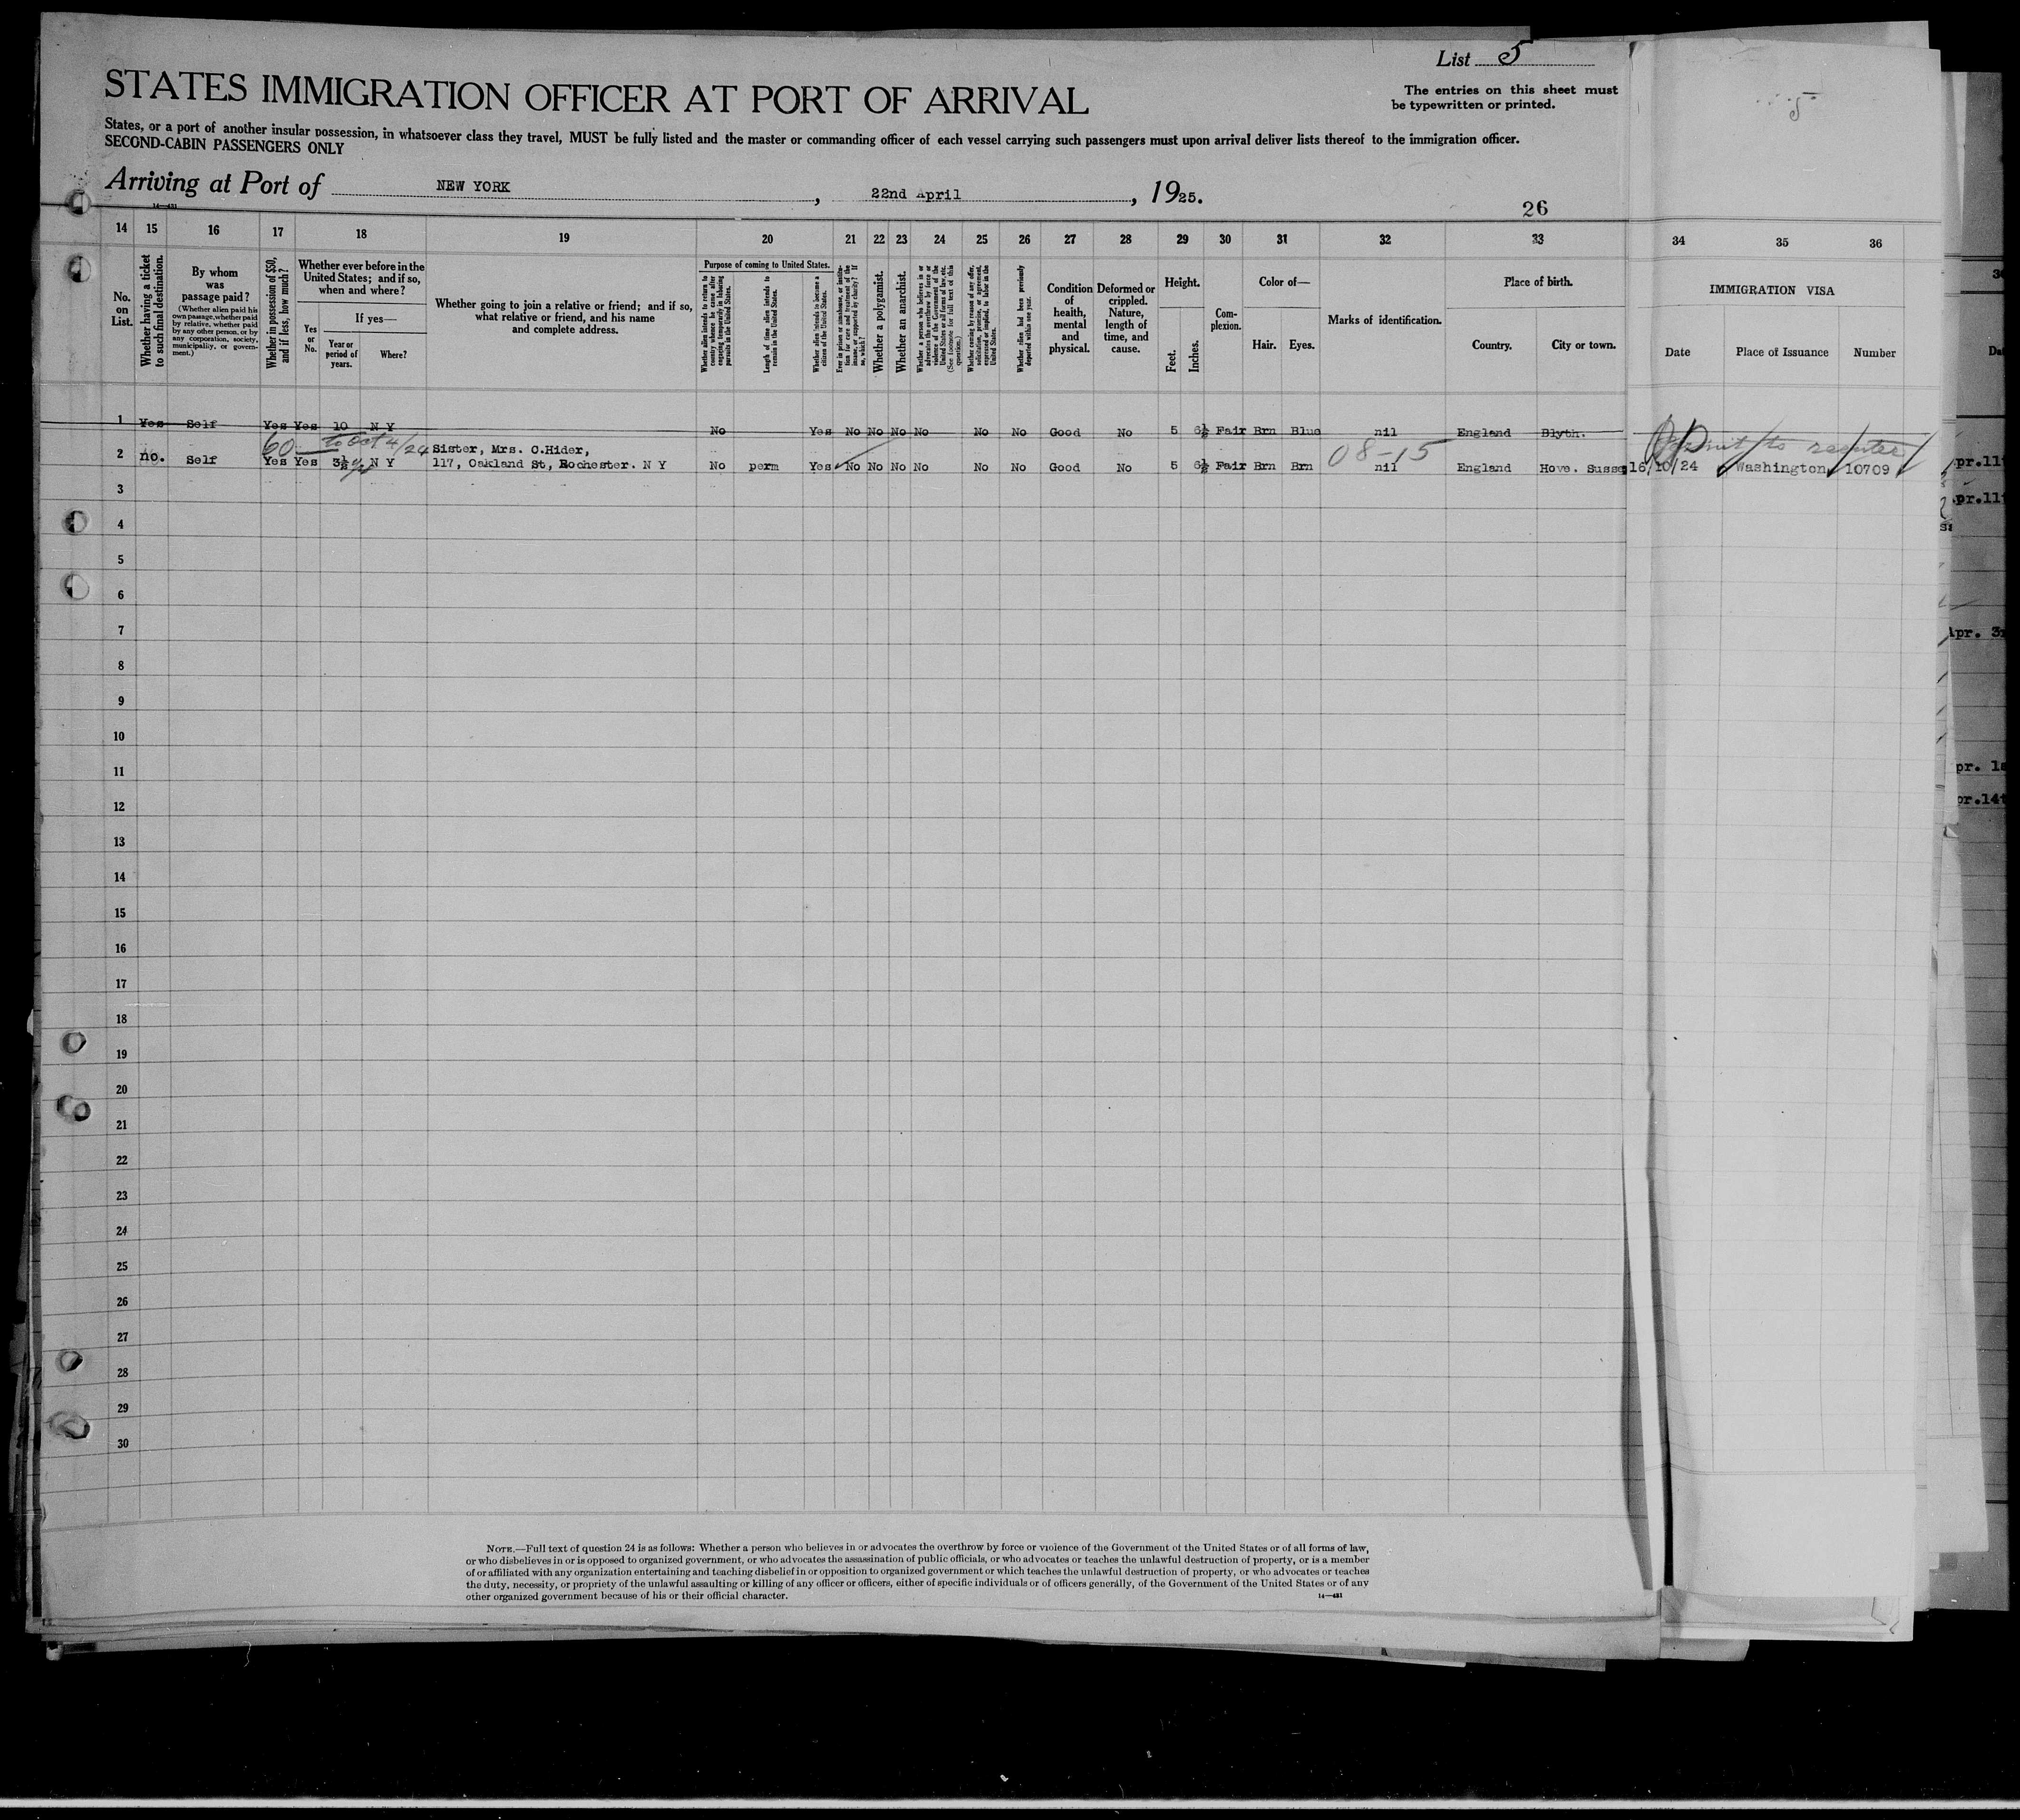 List 5
STATES IMMIGRATION OFFICER AT PORT OF ARRIVAL
The entries on this sheet must
be typewritten or printed.
States, or a port of another insular possession, in whatsoever class they travel, MUST be fully listed and the master or commanding officer of each vessel carrying such passengers must upon arrival deliver lists thereof to the immigration officer.
SECOND-CABIN PASSENGERS ONLY
5
Arriving at Port of NEW YORK, 22nd April, 1925.
14—431
26
14 15 16 17 18 19 20 21 22 23 24 25 26 27 28 29 30 31 32 33 34 35 36
No. on List.
Whether having a ticket to such final destination.
By whom was passage paid?
(Whether alien paid his own passage, whether paid by relative, whether paid by any other person, or by any corporation, society, municipality, or government.)
Whether in possession of $50, and if less, how much?
Whether ever before in the United States; and if so, when and where?
Yes or No.
If yes—
Year or period of years.
Where?
Whether going to join a relative or friend; and if so, what relative or friend, and his name and complete address.
Purpose of coming to United States.
Whether alien intends to return to country whence he came after engaging temporarily in laboring pursuits in the United States.
Length of time alien intends to remain in the United States.
Whether alien intends to become a citizen of the United States.
Ever in prison or almshouse, or institution for care and treatment of the insane, or supported by charity? If so, which?
Whether a polygamist.
Whether an anarchist.
Whether a person who believes in or advocates the overthrow by force or violence of the Government of the United States or all forms of law, etc. (See footnote for full text of this question.)
Whether coming by reason of any offer, solicitation, promise, or agreement, expressed or implied, to labor in the United States.
Whether alien had been previously deported within one year.
Condition of health, mental and physical.
Deformed or crippled. Nature, length of time, and cause.
Height.
Feet. Inches.
Complexion.
Color of—
Hair. Eyes.
Marks of identification.
Place of birth.
Country. City or town.
IMMIGRATION VISA
Date Place of Issuance Number
1 Yes Self Yes Yes 10 N Y No Yes No No No No No No Good No 5 6½ Fair Brn Blue nil England Blyth.
60 to Oct 4/24 Sister, Mrs. C.Hider, 08-15 Permit to reenter
2 no. Self Yes Yes 3½ N Y 117, Oakland St, Rochester. N Y No perm Yes No No No No No No Good No 5 6½ Fair Brn Brn nil England Hove. Susse 16/10/24 Washington 10709
3
4
5
6
7
8
9
10
11
12
13
14
15
16
17
18
19
20
21
22
23
24
25
26
27
28
29
30
pr.11
pr.11
Apr. 3
pr. 1
pr.14
NOTE.—Full text of question 24 is as follows: Whether a person who believes in or advocates the overthrow by force or violence of the Government of the United States or of all forms of law,
or who disbelieves in or is opposed to organized government, or who advocates the assassination of public officials, or who advocates or teaches the unlawful destruction of property, or is a member
of or affiliated with any organization entertaining and teaching disbelief in or opposition to organized government or which teaches the unlawful destruction of property, or who advocates or teaches
the duty, necessity, or propriety of the unlawful assaulting or killing of any officer or officers, either of specific individuals or of officers generally, of the Government of the United States or of any
other organized government because of his or their official character.
14—431